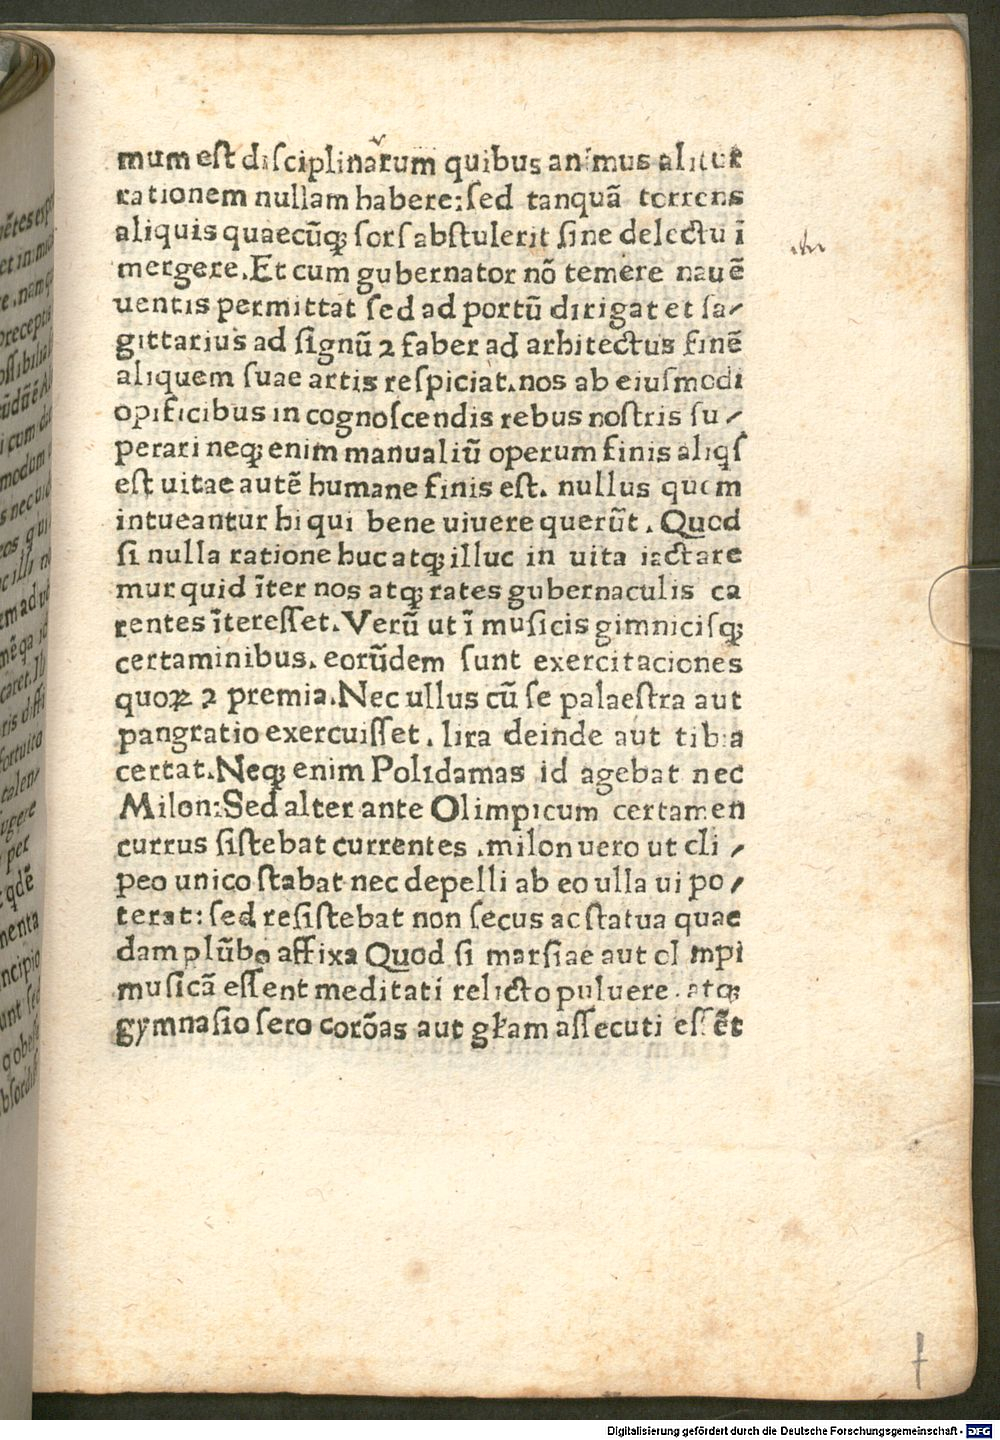 mum est disciplinarum quibus animus alitur
rationem nullam habere: sed tanquā torrens
aliquis quaecūqꝫ sors abstulerit sine delectu ī
mergere. Et cum gubernator nō temere nauē
uentis permittat sed ad portū dirigat et sa⸗
gittarius ad signū ⁊ faber ad arhitectus finē
aliquem suae artis respiciat. nos ab eiusmodi
opificibus in cognoscendis rebus nostris su⸗
perari neqꝫ enim manualiū operum finis aliqs
est uitae autē humane finis est. nullus quem
intueantur hi qui bene uiuere querūt. Quod
si nulla ratione huc atqꝫ illuc in uita iactare
mur quid īter nos atqꝫ rates gubernaculis ca
rentes īteresset. Verū ut ī musicis gimnicisqꝫ
certaminibus. eorūdem sunt exercitaciones
quoꝝ ⁊ premia. Nec ullus cū se palaestra aut
pangratio exercuisset. lira deinde aut tibia
certat. Neqꝫ enim Polidamas id agebat nec
Milon: Sed alter ante Olimpicum certamen
currus sistebat currentes. milon uero ut cli⸗
peo unico stabat nec depelli ab eo ulla ui po⸗
terat: sed resistebat non secus ac statua quae
dam plūbo affixa Quod si marsiae aut olimpi
musicā essent meditati relicto puluere. atqꝫ
gymnasio sero corōas aut gl̄am assecuti essēt
7
Digitalisierung gefördert durch die Deutsche Forschungsgemeinschaft - DFG